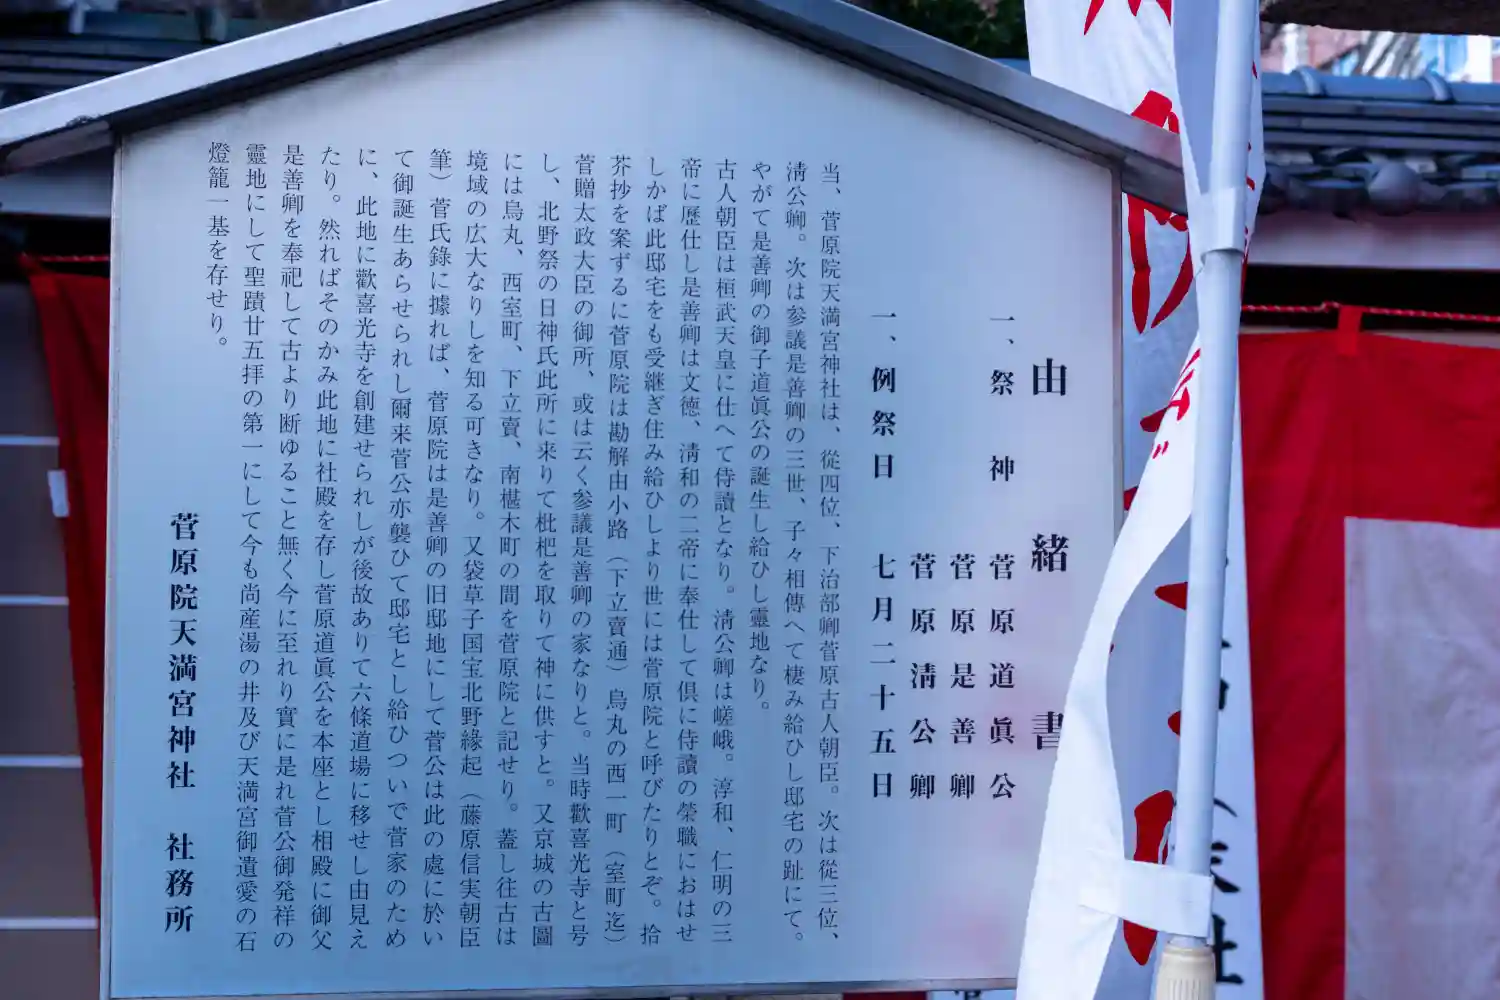 由緒書
一、祭神 菅原道眞公
菅原是善卿
菅原淸公卿
一、例祭日 七月二十五日
当、菅原院天満宮神社は、従四位、下治部卿菅原古人朝臣。次は従三位、
淸公卿。次は参議是善卿の三世、子々相傳へて棲み給ひし邸宅の趾にて。
やがて是善卿の御子道眞公の誕生し給ひし靈地なり。
古人朝臣は桓武天皇に仕へて侍讀となり。淸公卿は嵯峨。淳和、仁明の三
帝に歴仕し是善卿は文徳、淸和の二帝に奉仕して倶に侍讀の榮職におはせ
しかば此邸宅をも受継ぎ住み給ひしより世には菅原院と呼びたりとぞ。拾
芥抄を案ずるに菅原院は勘解由小路（下立賣通）烏丸の西一町（室町迄）
菅贈太政大臣の御所、或は云く参議是善卿の家なりと。当時歡喜光寺と号
し、北野祭の日神氏此所に来りて枇杷を取りて神に供すと。又京城の古圖
には烏丸、西室町、下立賣、南椹木町の間を菅原院と記せり。蓋し往古は
境域の広大なりしを知る可きなり。又袋草子国宝北野緣起（藤原信実朝臣
筆）菅氏錄に據れば、菅原院は是善卿の旧邸地にして菅公は此の處に於い
て御誕生あらせられし爾来菅公亦襲ひて邸宅とし給ひついで菅家のため
に、此地に歡喜光寺を創建せられしが後故ありて六條道場に移せし由見え
たり。然ればそのかみ此地に社殿を存し菅原道眞公を本座とし相殿に御父
是善卿を奉祀して古より断ゆること無く今に至れり實に是れ菅公御発祥の
靈地にして聖蹟廿五拝の第一にして今も尚産湯の井及び天満宮御遺愛の石
燈籠一基を存せり。
菅原院天満宮神社 社務所